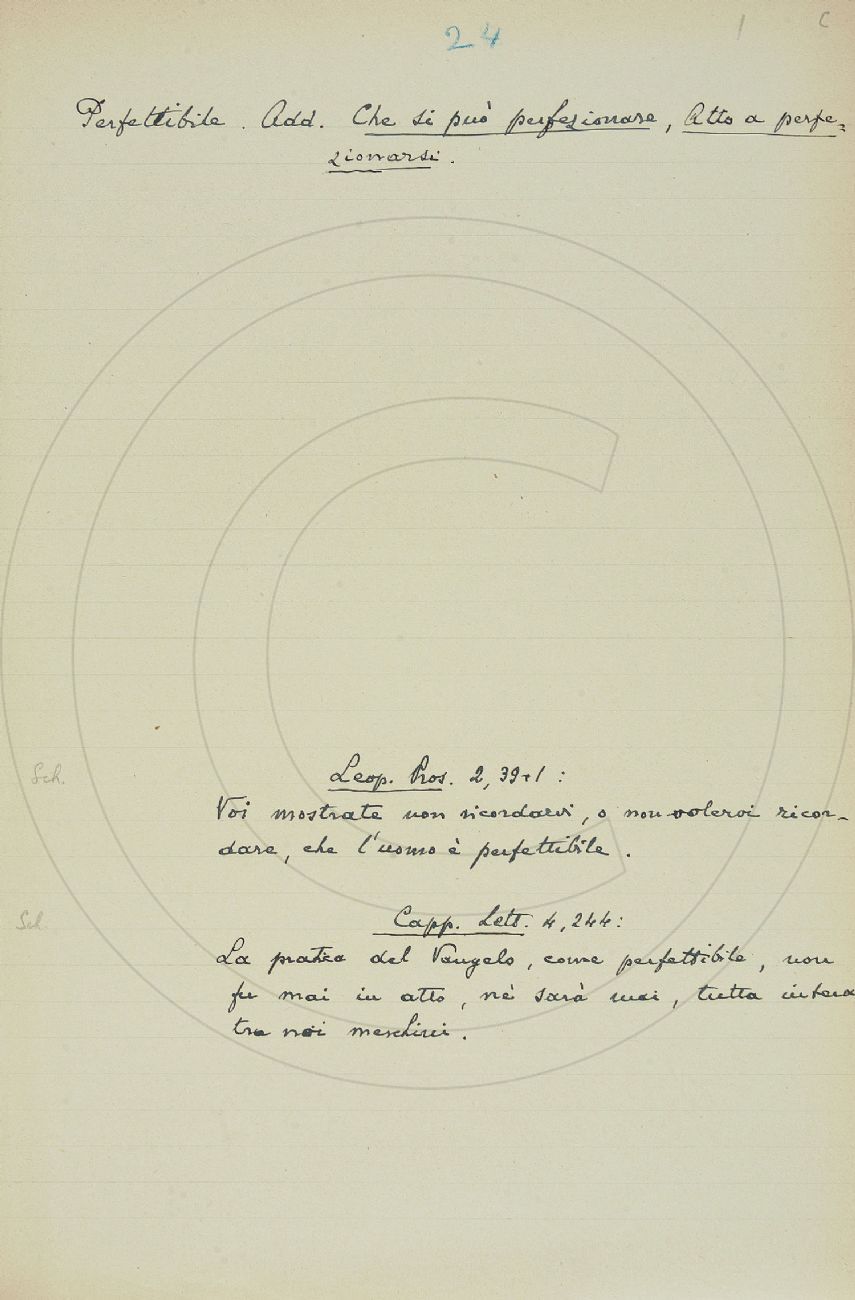 24
C
Perfettibile. Add. Che si può perfezionare, Atto a perfe-
zionarsi.
Sch.
Leop. Pros. 2,
Voi mostrate non ricordarvi, o non volervi ricor-
dare, che l'uomo è perfettibile.
Capp. Lett. 4, 244:
La pratica del Vangelo, come perfettibile, non
fu mai in atto, nè sarà mai, tutta intera
tra noi meschini.